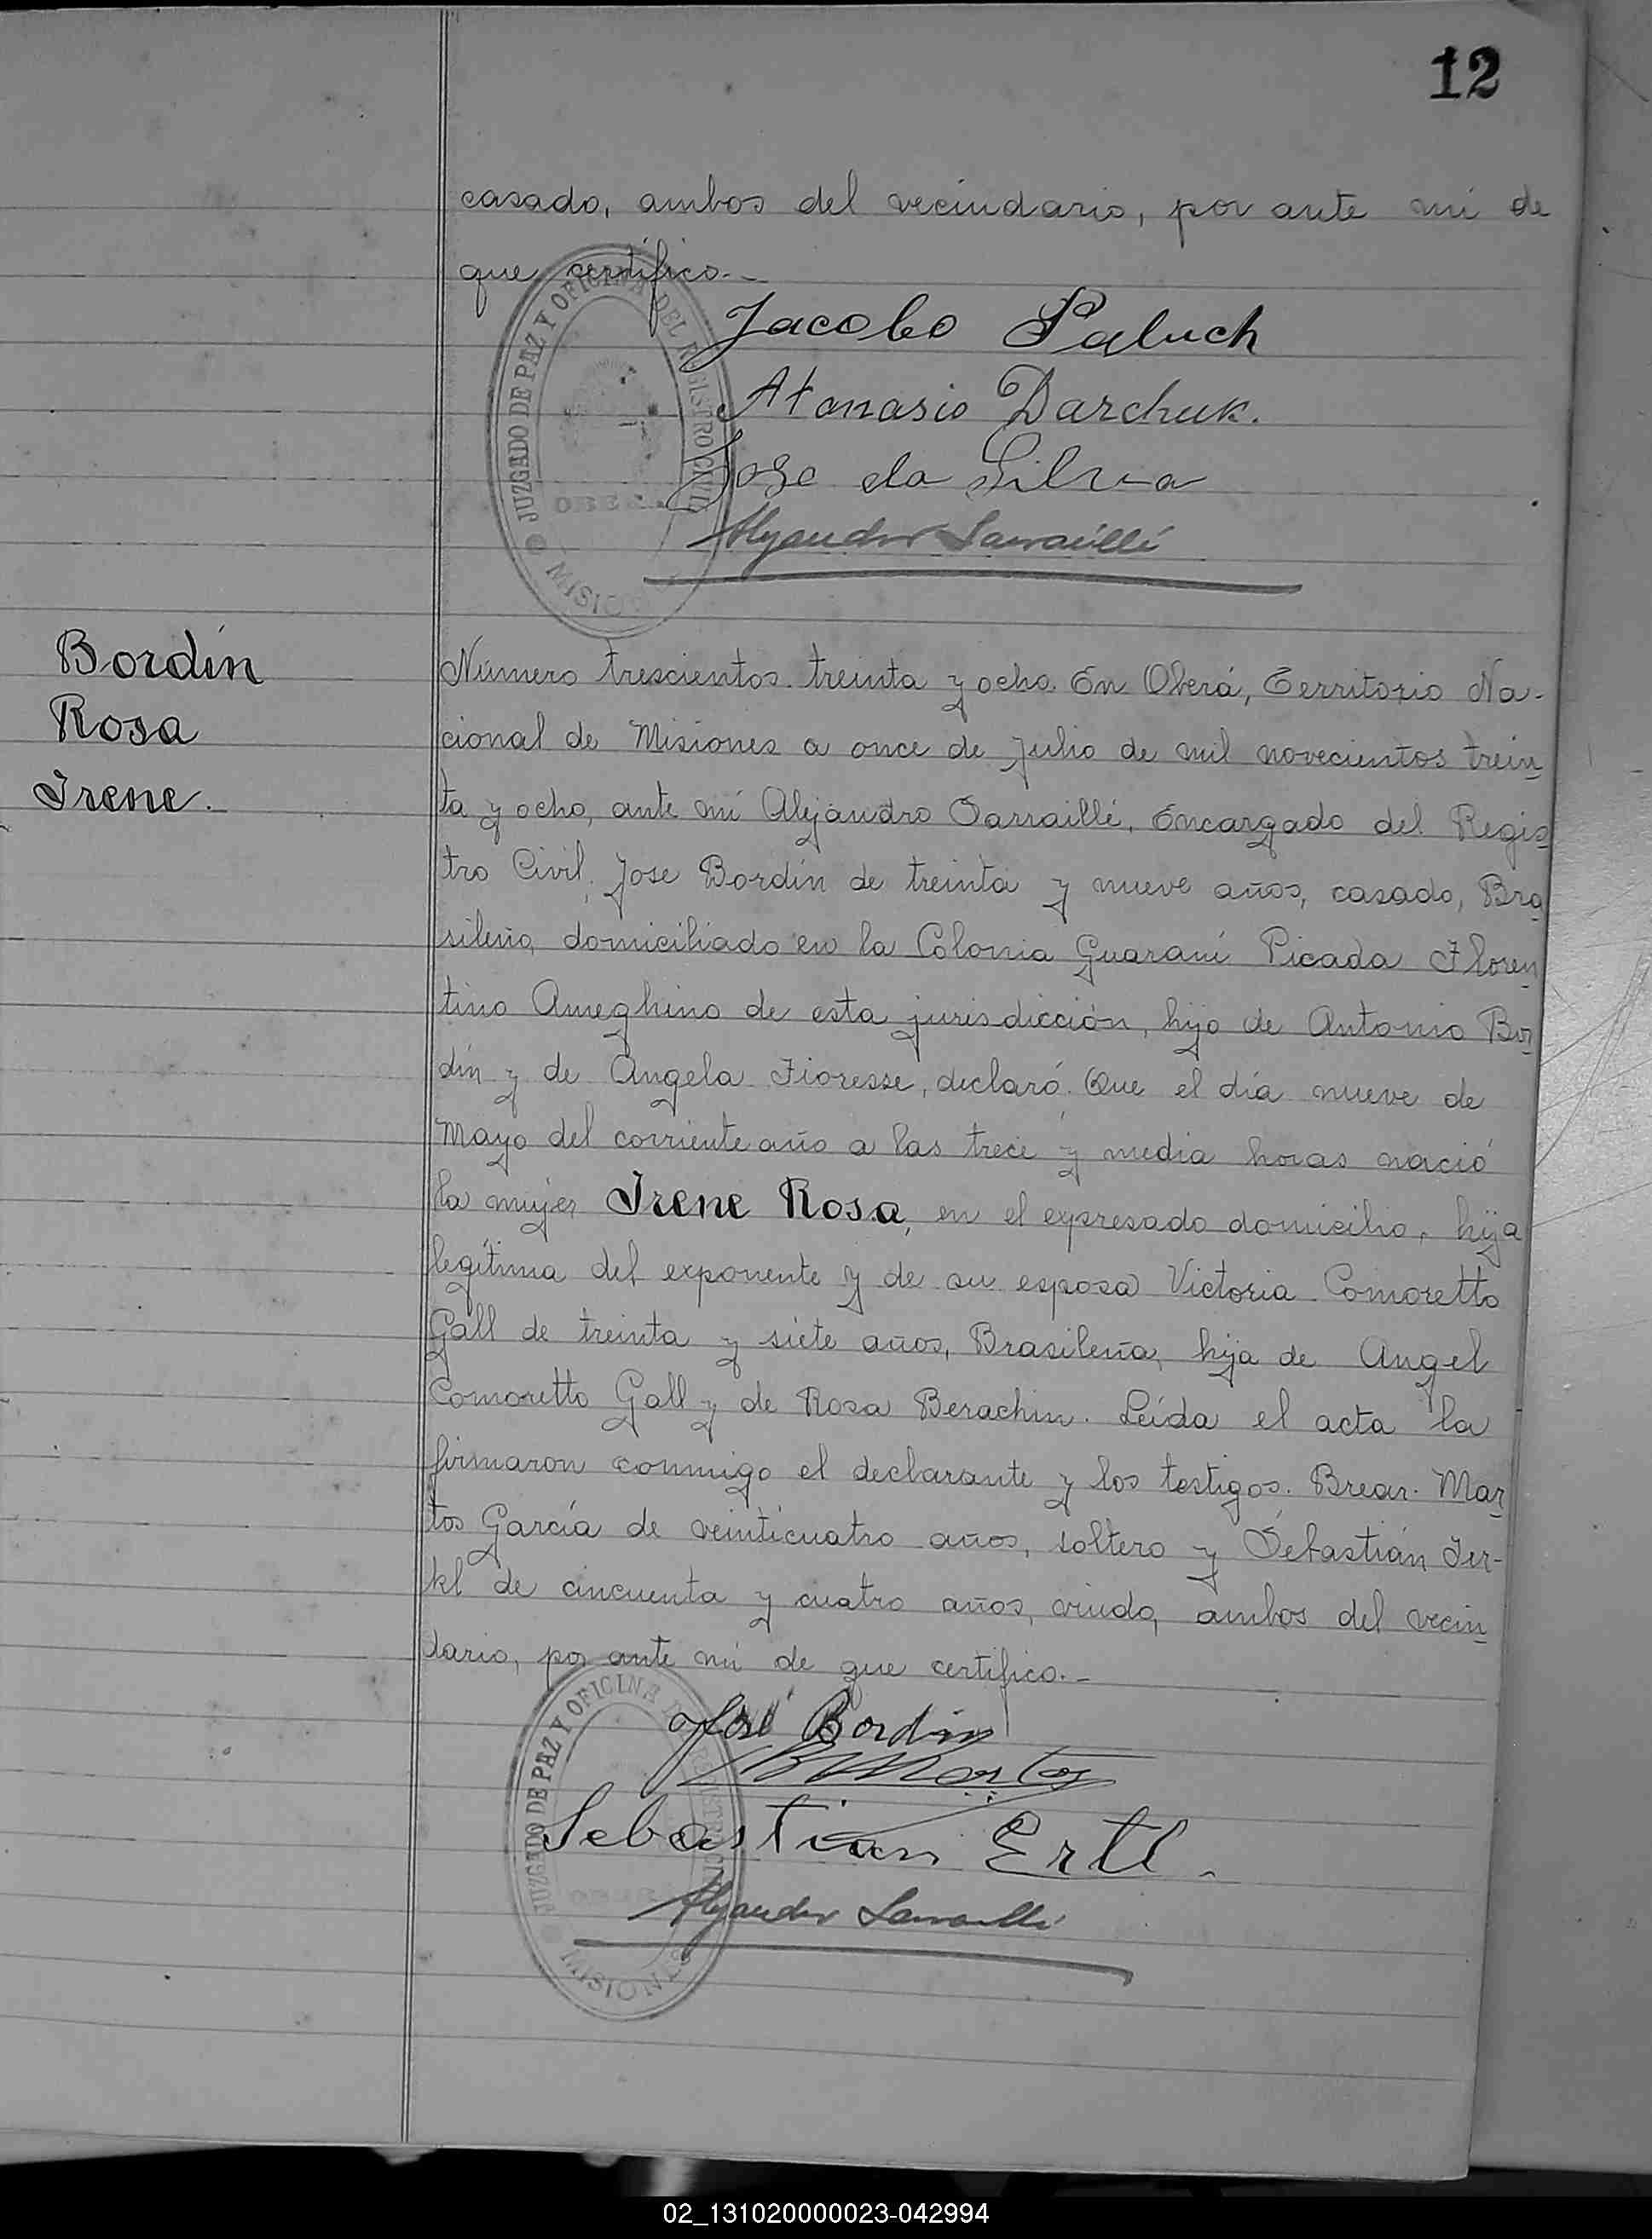 12
casado, ambos del vecindario, por ante mi de
que certifico.-
Jacobo Paluch
Atanasio Darchuk.
Jose da Silva
Alejandro Sarraillé
JUZGADO DE PAZ Y OFICINA DEL REGISTRO CIVIL
MISIO
Bordin
Rosa
Irene.
Número trescientos treinta y ocho. En Oberá, Territorio Na-
cional de Misiones a once de Julio de mil novecientos trein
ta y ocho, ante mí Alejandro Sarraillé, Encargado del Regis
tro Civil, Jose Bordin de treinta y nueve años, casado, Bra
sileño, domiciliado en la Colonia Guaraní Picada Floren
tino Ameghino de esta jurisdicción, hijo de Antonio Bor
din y de Angela Fioresse, declaró. Que el día nueve de
Mayo del corriente año a las trece y media horas nació
la mujer Irene Rosa, en el expresado domicilio, hija
legítima del exponente y de su esposa Victoria Comoretto
Gall de treinta y siete años, Brasileña, hija de Angel
Comoretto Gall y de Rosa Berachin. Leída el acta la
firmaron conmigo el declarante y los testigos. Brear. Mar
tos García de veinticuatro años, soltero y Sebastián Jer-
kl de cincuenta y cuatro años, viudo, ambos del vecin
dario, por ante mí de que certifico.-
José Bordin
BMartos
Sebastian Ertl.
Alejandro Sarraillé
JUZGADO DE PAZ Y OFICINA DEL REGISTRO CIVIL
MISIONES
02_131020000023-042994